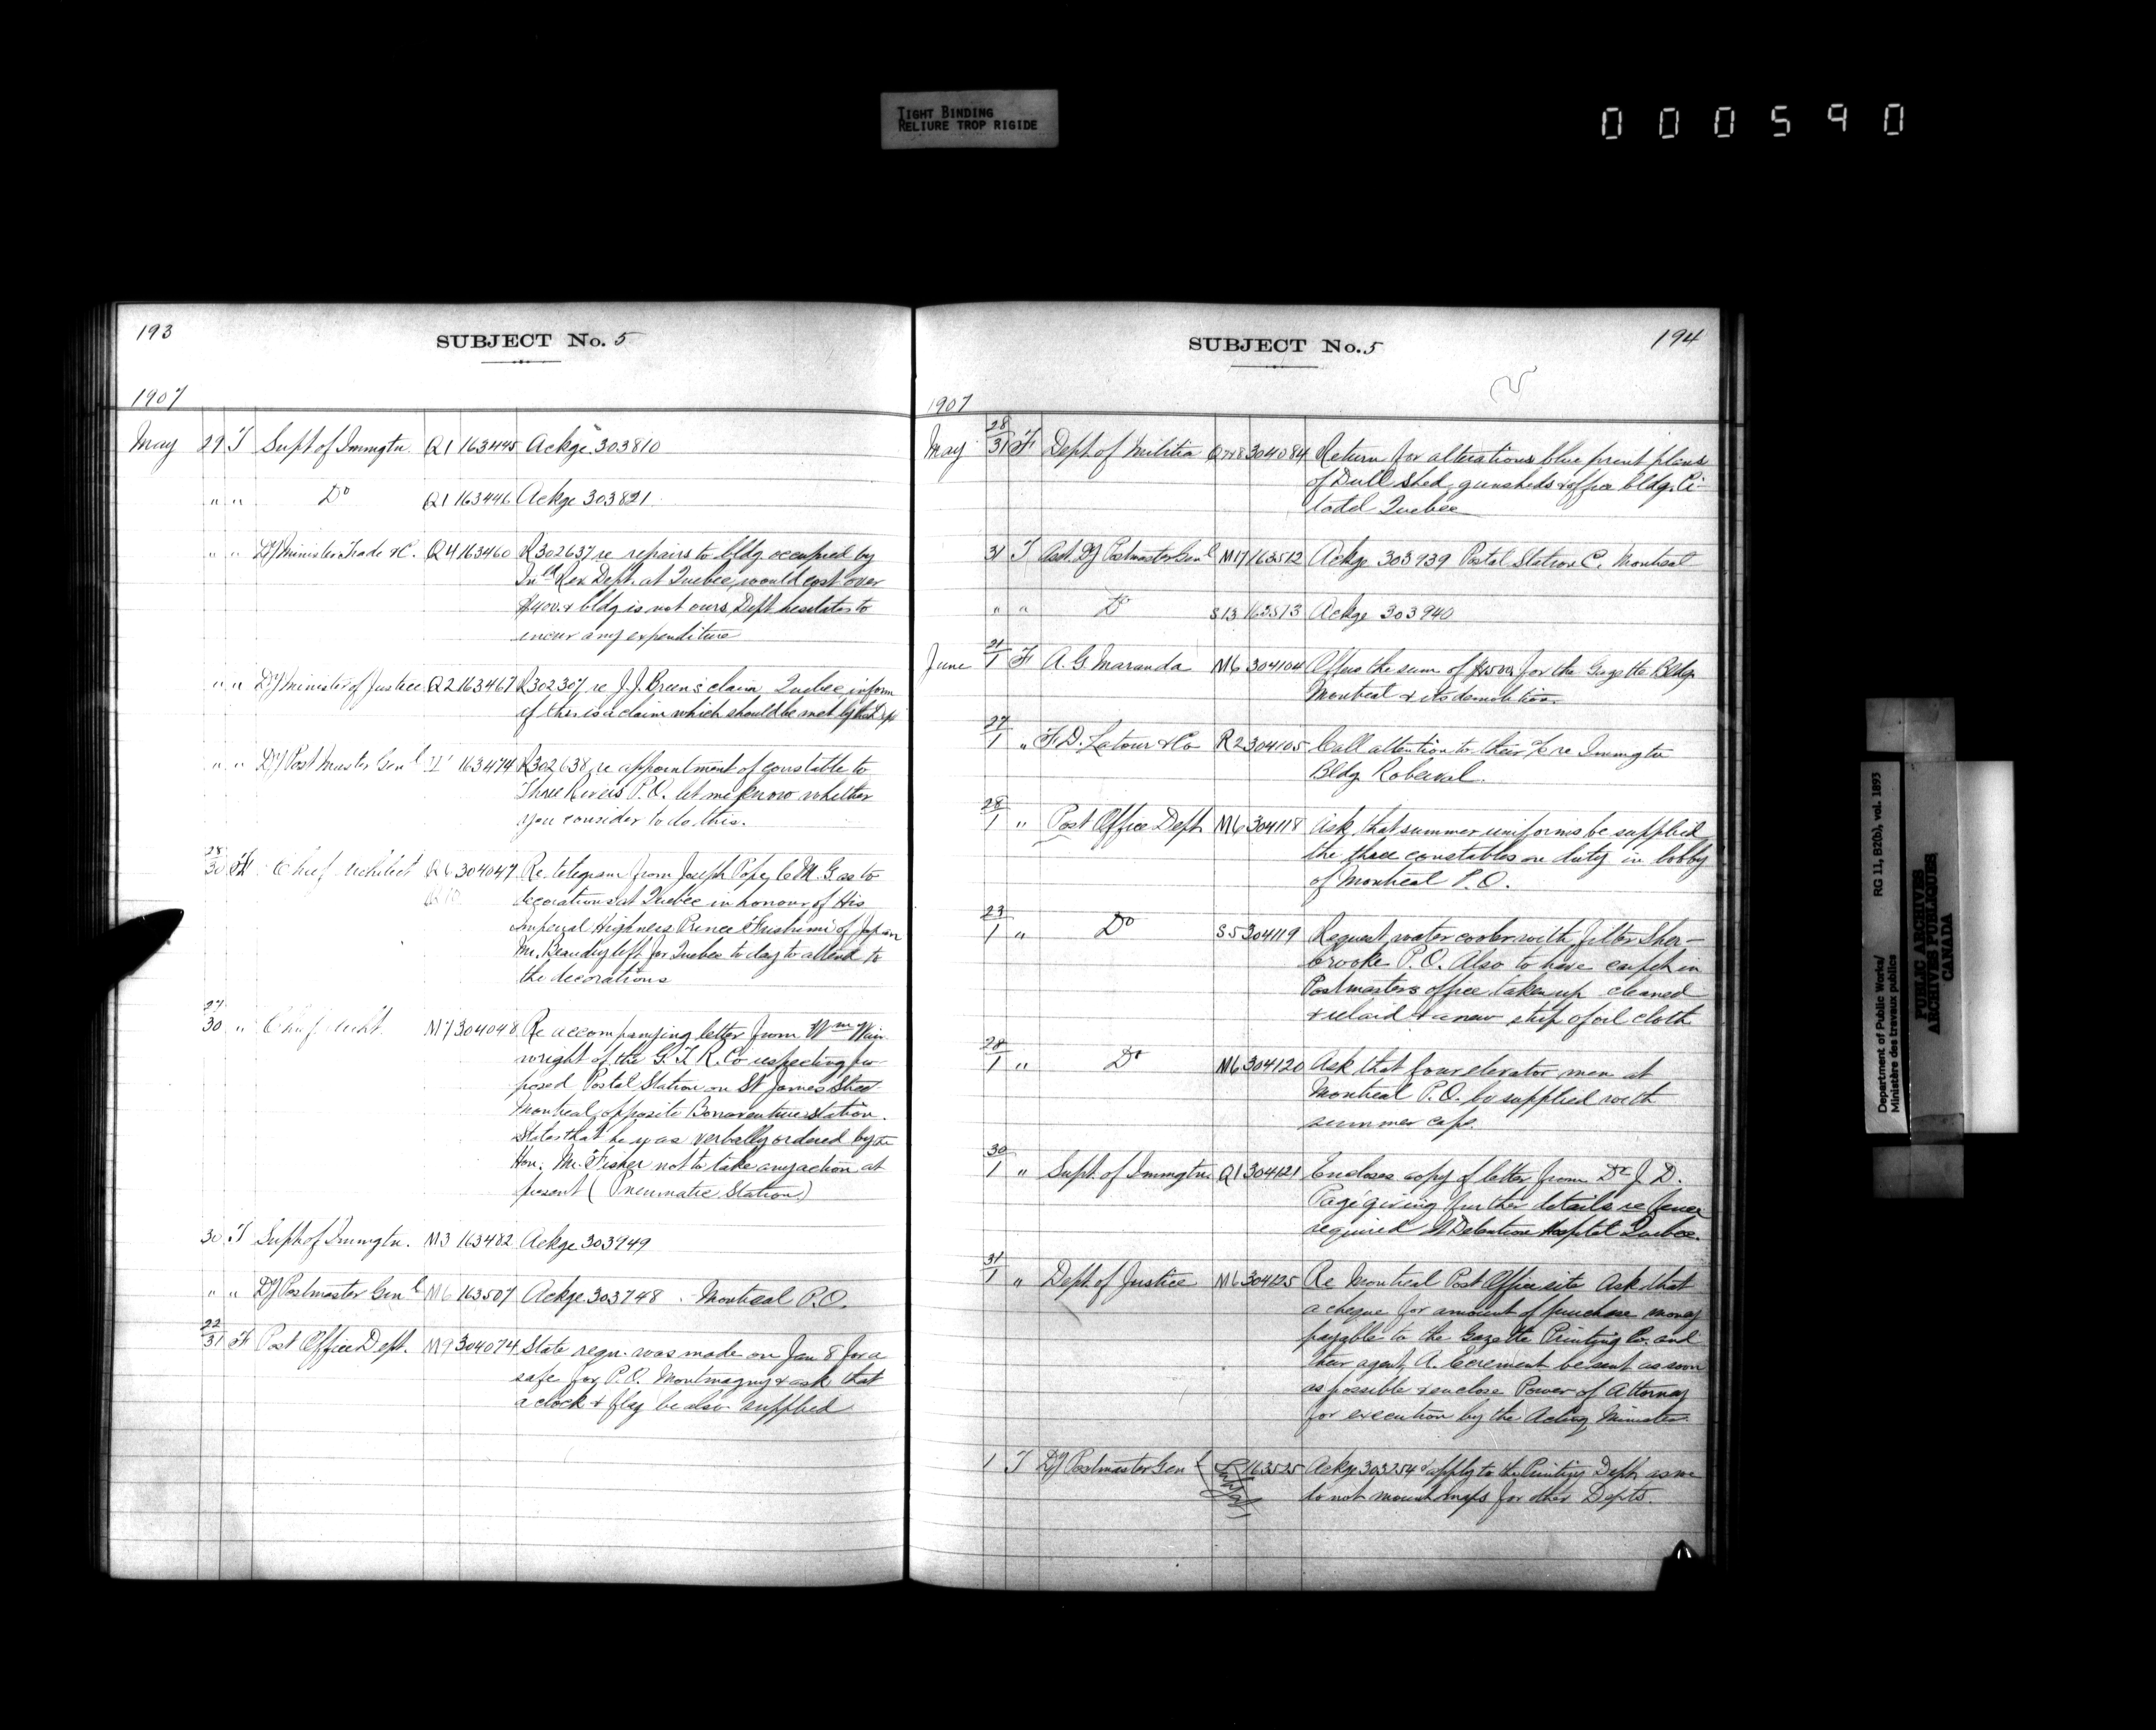 TIGHT BINDING
RELIURE TROP RIGIDE
000590
193
SUBJECT No. 5
1907
May 29 T Supt of Immgtn Q1 163445 Ackge 303810
" " Do Q1 163446 Ackge 303821
" " Dy Minister Trade & C. Q4 163460 R302637 re repairs to bldg. occupied by
Inld Rev. Dept. at Quebec, would cost over
$400. & bldg is not ours, Dept hesitates to
incur any expenditure
" " Dy Minister of Justice Q2 163467 R302307 re J.J. Breen's claim, Quebec, inform
if this is a claim which should be met by that Dept
" " Dy Post Master Genl 163474 R302638 re appointment of constable to
Three Rivers P.O. let me know whether
you consider to do this.
28/30 F Chief Architect Q6 304047 Re telegram from Joseph Pope, C.M.G. as to
Q10 decorations at Quebec in honour of His
Imperial Highness Prince Fushimi of Japan
Mr. Beaudry left for Quebec to day to attend to
the decorations
27/30 " Chief Archt. M17 304048 Re accompanying letter from Wm Wain
wright of the G.T.R. Co respecting pro
posed Postal Station on St James Street
Montreal, opposite Bonaventure Station.
States that he was verbally ordered by the
Hon. Mr. Fisher not to take any action at
present (Pneumatic Station)
30 T Supt of Immgtn. M3 163482 Ackge 303749
" " Dy Postmaster Genl M6 163507 Ackge 303748 . Montreal P.O.
22/31 F Post Office Dept. M9 304074 State reqn. was made on Jan 8 for a
safe for P.O. Montmagny & ask that
a clock & flag be also supplied
194
SUBJECT No. 5
1907
May 28/31 F Dept. of Militia 304084 Return for alterations blue print plans
of Drill Shed, gunsheds & office bldg. Ci-
tadel Quebec
31 T Asst. Dy Postmaster Genl M17 163512 Ackge 303939 Postal Station C. Montreal
" " Do S13 163513 Ackge 303940
June 31/1 F A. G. Maranda M6 304104 Offers the sum of $1500 for the Gazette Bldg.
Montreal & its demolition.
27/1 " F. D. Latour & Co R2 304105 Call attention to their a/c re Immgtn
Bldg Roberval.
28/1 " Post Office Dept M6 304118 Ask that summer uniforms be supplied
the three constables on duty in lobby
of Montreal P.O.
23/1 " Do S5 304119 Request water cooler with filter Sher-
brooke P.O. Also to have carpet in
Postmasters office taken up cleaned
& relaid & a new strip of oil cloth
28/1 " Do M6 304120 Ask that four elevator men at
Montreal P.O. be supplied with
summer caps.
30/1 " Supt. of Immgtn. Q1 304121 Encloses copy of letter from Dr J. D.
Pagé giving further details re fence
required at Detention Hospital Quebec.
31/1 " Dept. of Justice M6 304125 Re Montreal Post Office site Ask that
a cheque for amount of purchase money
payable to the Gazette Printing Co. and
their agent, A. Ecrement be sent as soon
as possible & enclose Power of Attorney
for execution by the Acting Minister.
1 T Dy Postmaster Genl 163525 Ackge 303254 & apply to the Printing Dept. as we
do not mount maps for other Depts.
Department of Public Works/
Ministère des travaux publics
RG 11, B2(b), vol. 1893
PUBLIC ARCHIVES
ARCHIVES PUBLIQUES
CANADA